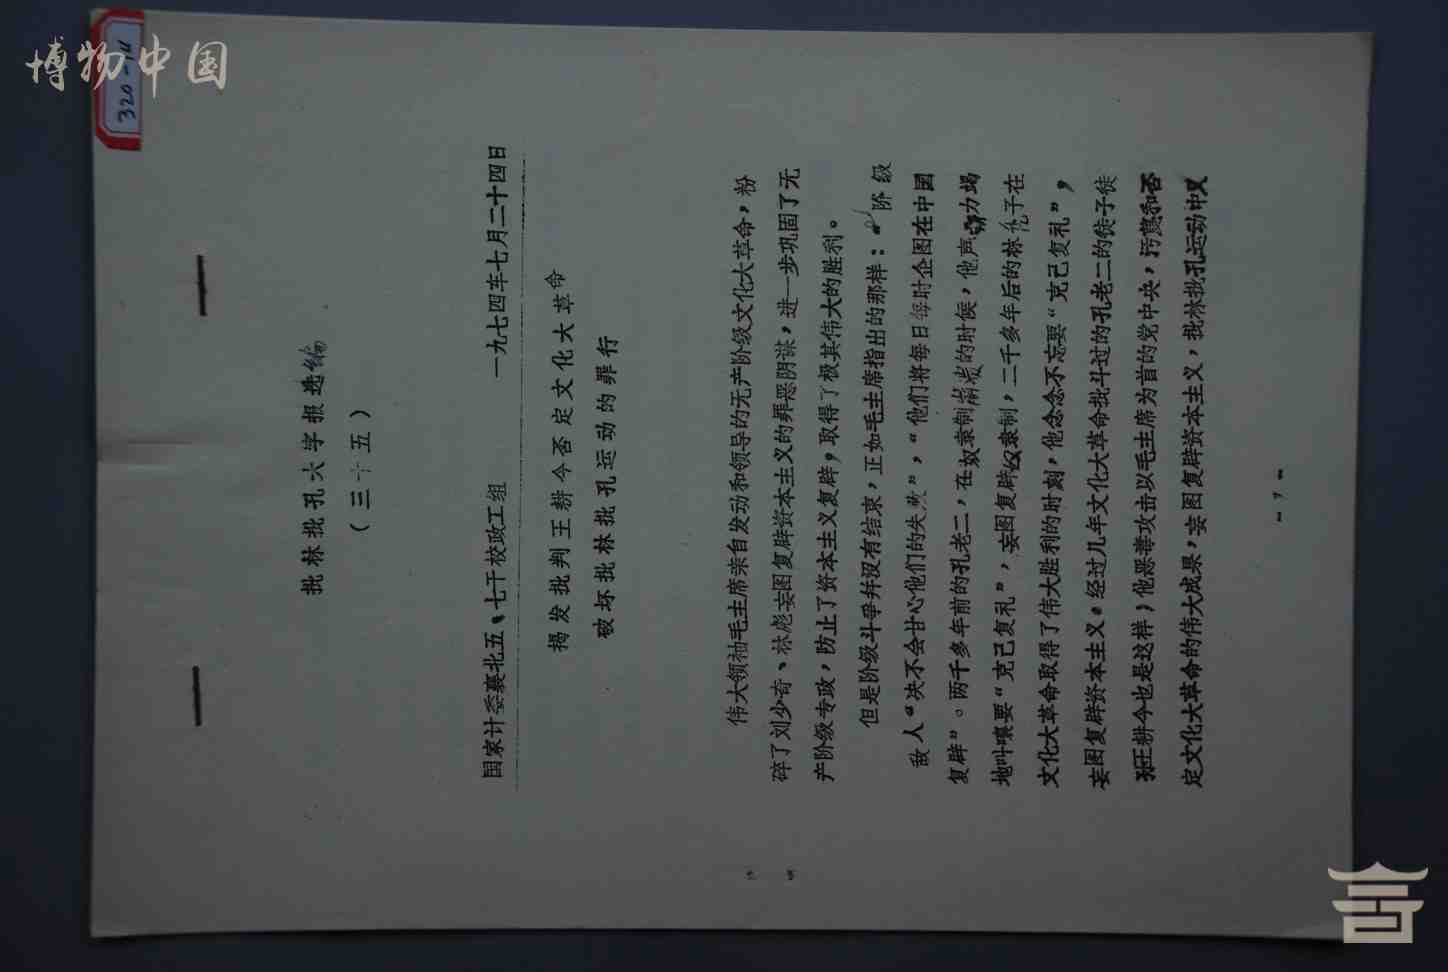 博物中国
320-14
批林批孔大字报选编
（三十五）
国家计委襄北五、七干校政工组 一九七四年七月二十四日
揭发批判王耕今否定文化大革命
破坏批林批孔运动的罪行
伟大领袖毛主席亲自发动和领导的无产阶级文化大革命，粉
碎了刘少奇、林彪妄图复辟资本主义的罪恶阴谋，进一步巩固了无
产阶级专政，防止了资本主义复辟，取得了极其伟大的胜利。
但是阶级斗争并没有结束，正如毛主席指出的那样：阶级
敌人“决不会甘心他们的失败”，“他们将每日每时企图在中国
复辟”。两千多年前的孔老二，在奴隶制崩溃的时候，他声嘶力竭
地叫嚷要“克己复礼”，妄图复辟奴隶制，二千多年后的林彪在
文化大革命取得了伟大胜利的时刻，他念念不忘要“克己复礼”，
妄图复辟资本主义。经过几年文化大革命批斗过的孔老二的徒子徒
孙王耕今也是这样，他恶毒攻击以毛主席为首的党中央，污蔑和否
定文化大革命的伟大成果，妄图复辟资本主义，批林批孔运动中又